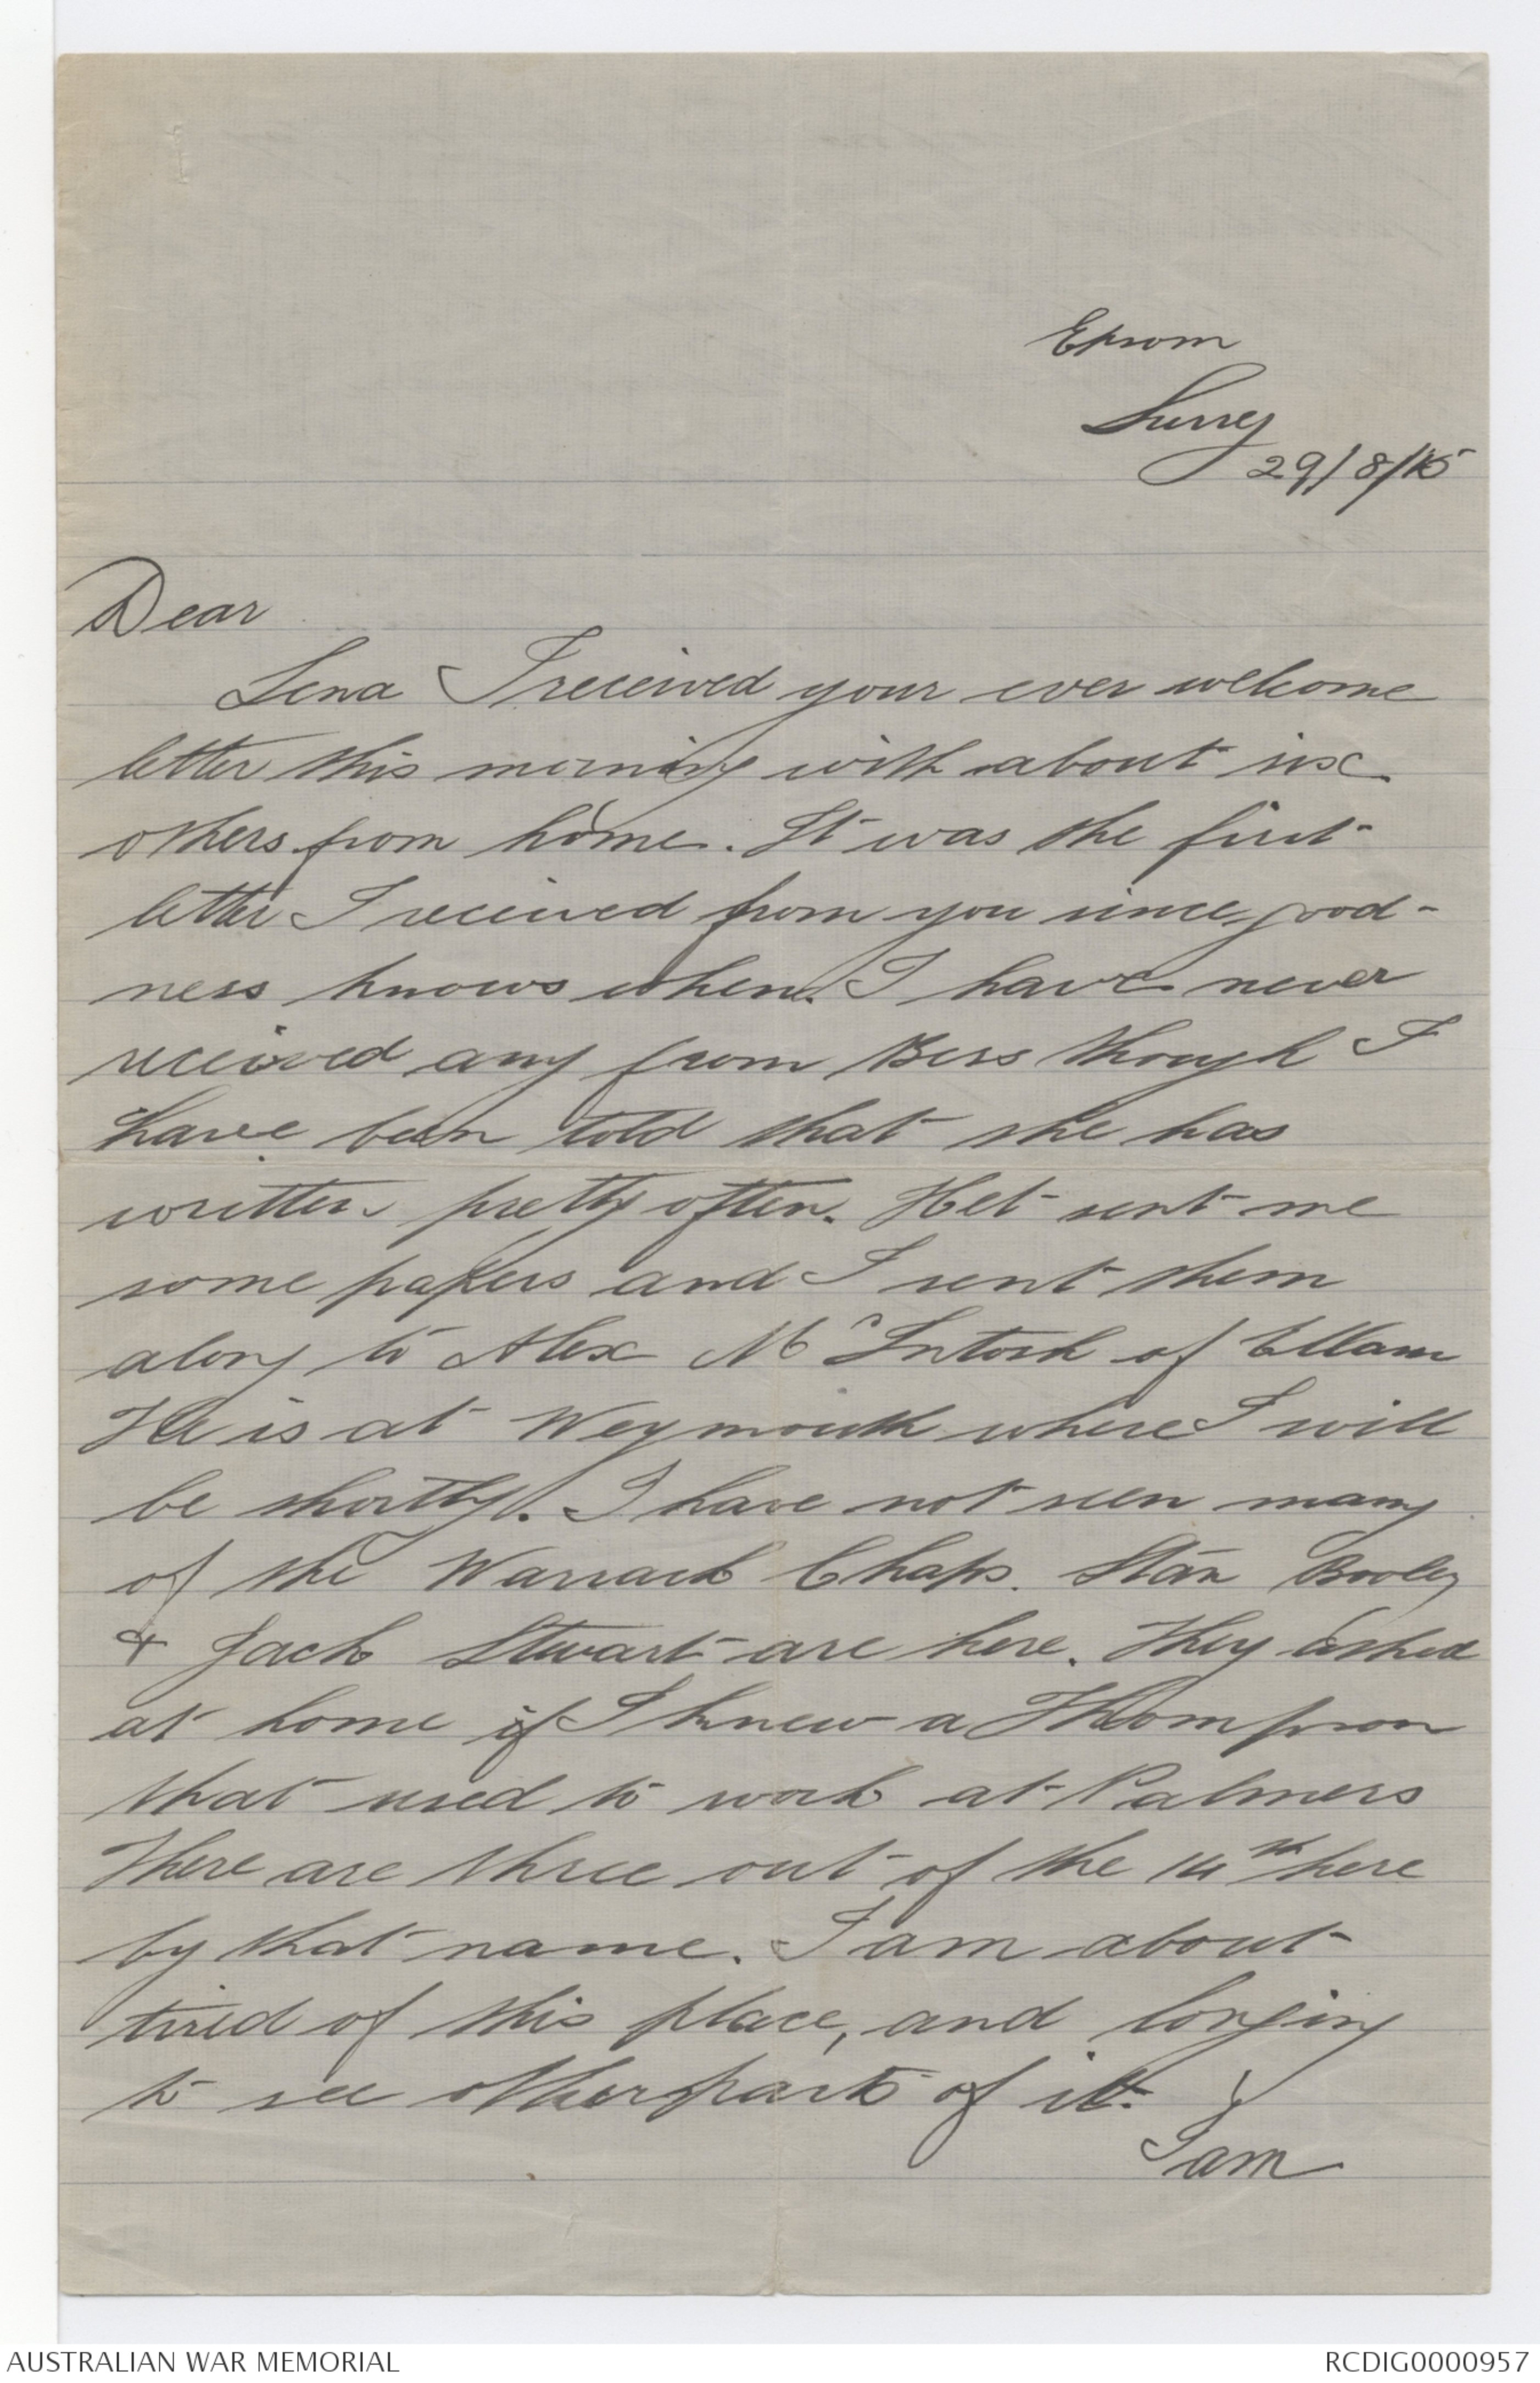 Epsom
Surrey
29/8/15
Dear
Lena I received your ever welcome
letter this morning with about six
others from home. It was the first
letter I received from you since good-
ness knows when. I have never
received any from Bess though I
have been told that she has
written pretty often. Het sent me
some papers and I sent them
along to Alex McIntosh of Ellam
He is at Weymouth where I will
be shortly. I have not seen many
of the Warrack Chaps. Stan Booley
& Jack Stewart are here. They asked
at home if I knew a Thompson
that used to work at Palmers
There are three out of the 14th here
by that name. I am about
tired of this place, and longing
to see other parts of it.
I am
AUSTRALIAN WAR MEMORIAL
RCDIG0000957